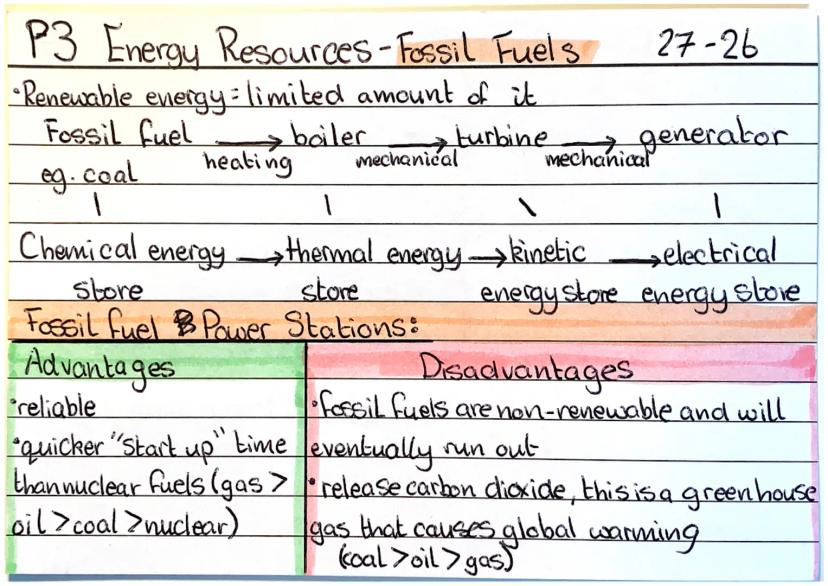 P3 Energy Resources - Fossil Fuels 27-26
•Renewable energy = limited amount of it
Fossil fuel → boiler → turbine → generator
heating mechanical mechanical
eg. coal
Chemical energy → thermal energy → kinetic → electrical
store store energy store energy store
Fossil fuel Power Stations:
Advantages
•reliable
•quicker "start up" time
than nuclear fuels (gas >
oil > coal > nuclear)
Disadvantages
•fossil fuels are non-renewable and will
eventually run out
•release carbon dioxide, this is a greenhouse
gas that causes global warming
(coal > oil > gas)